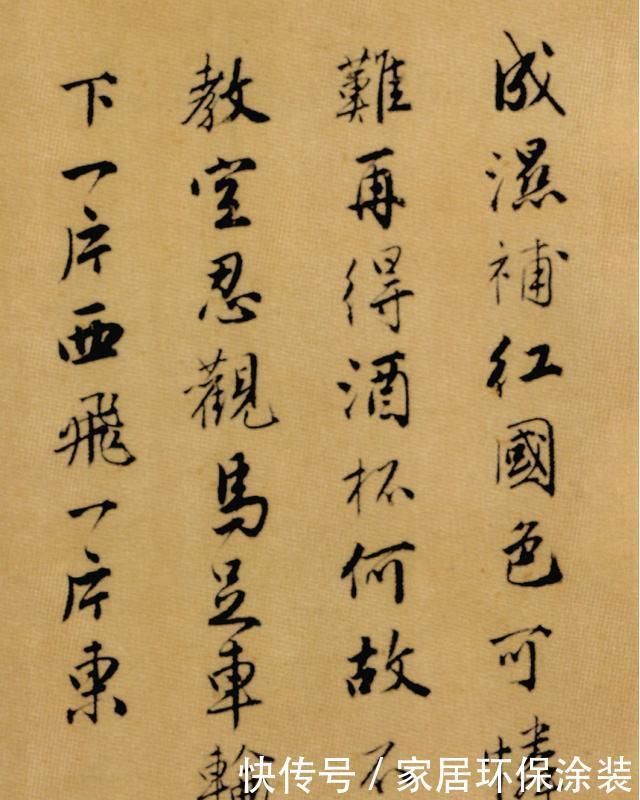 成濕補紅國色可憐
難再得酒杯何故不
教空忍觀馬足車輪
下一片西飛一片東
快传号/家居环保涂装